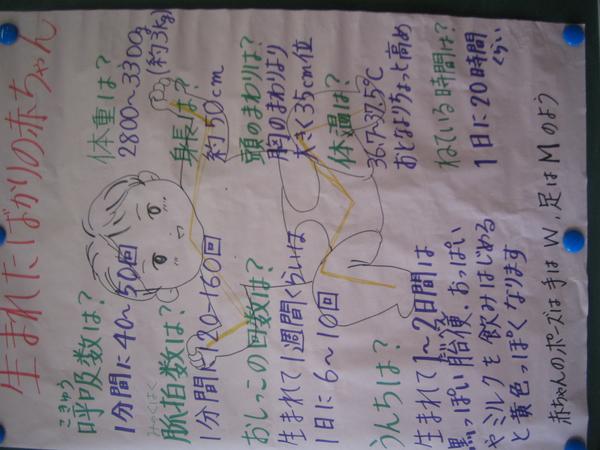 生まれたばかりの赤ちゃん
体重は?
2800〜3300g
(約3kg)
身長は?
約50cm
頭のまわりは?
胸のまわりより
大きく35cm位
体温は?
36.7〜37.5℃
おとなよりちょっと高め
ねている時間は?
1日に20時間
くらい
こきゅう
呼吸数は?
1分間に40〜50回
みゃくはく
脈拍数は?
1分間に120〜160回
おしっこの回数は?
生まれて1週間くらいは
1日に6〜10回
うんちは?
生まれて1〜2日間は
黒っぽい胎便、おっぱい
やミルクを飲みはじめる
と黄色っぽくなります
赤ちゃんのポーズは手はW、足はMのよう